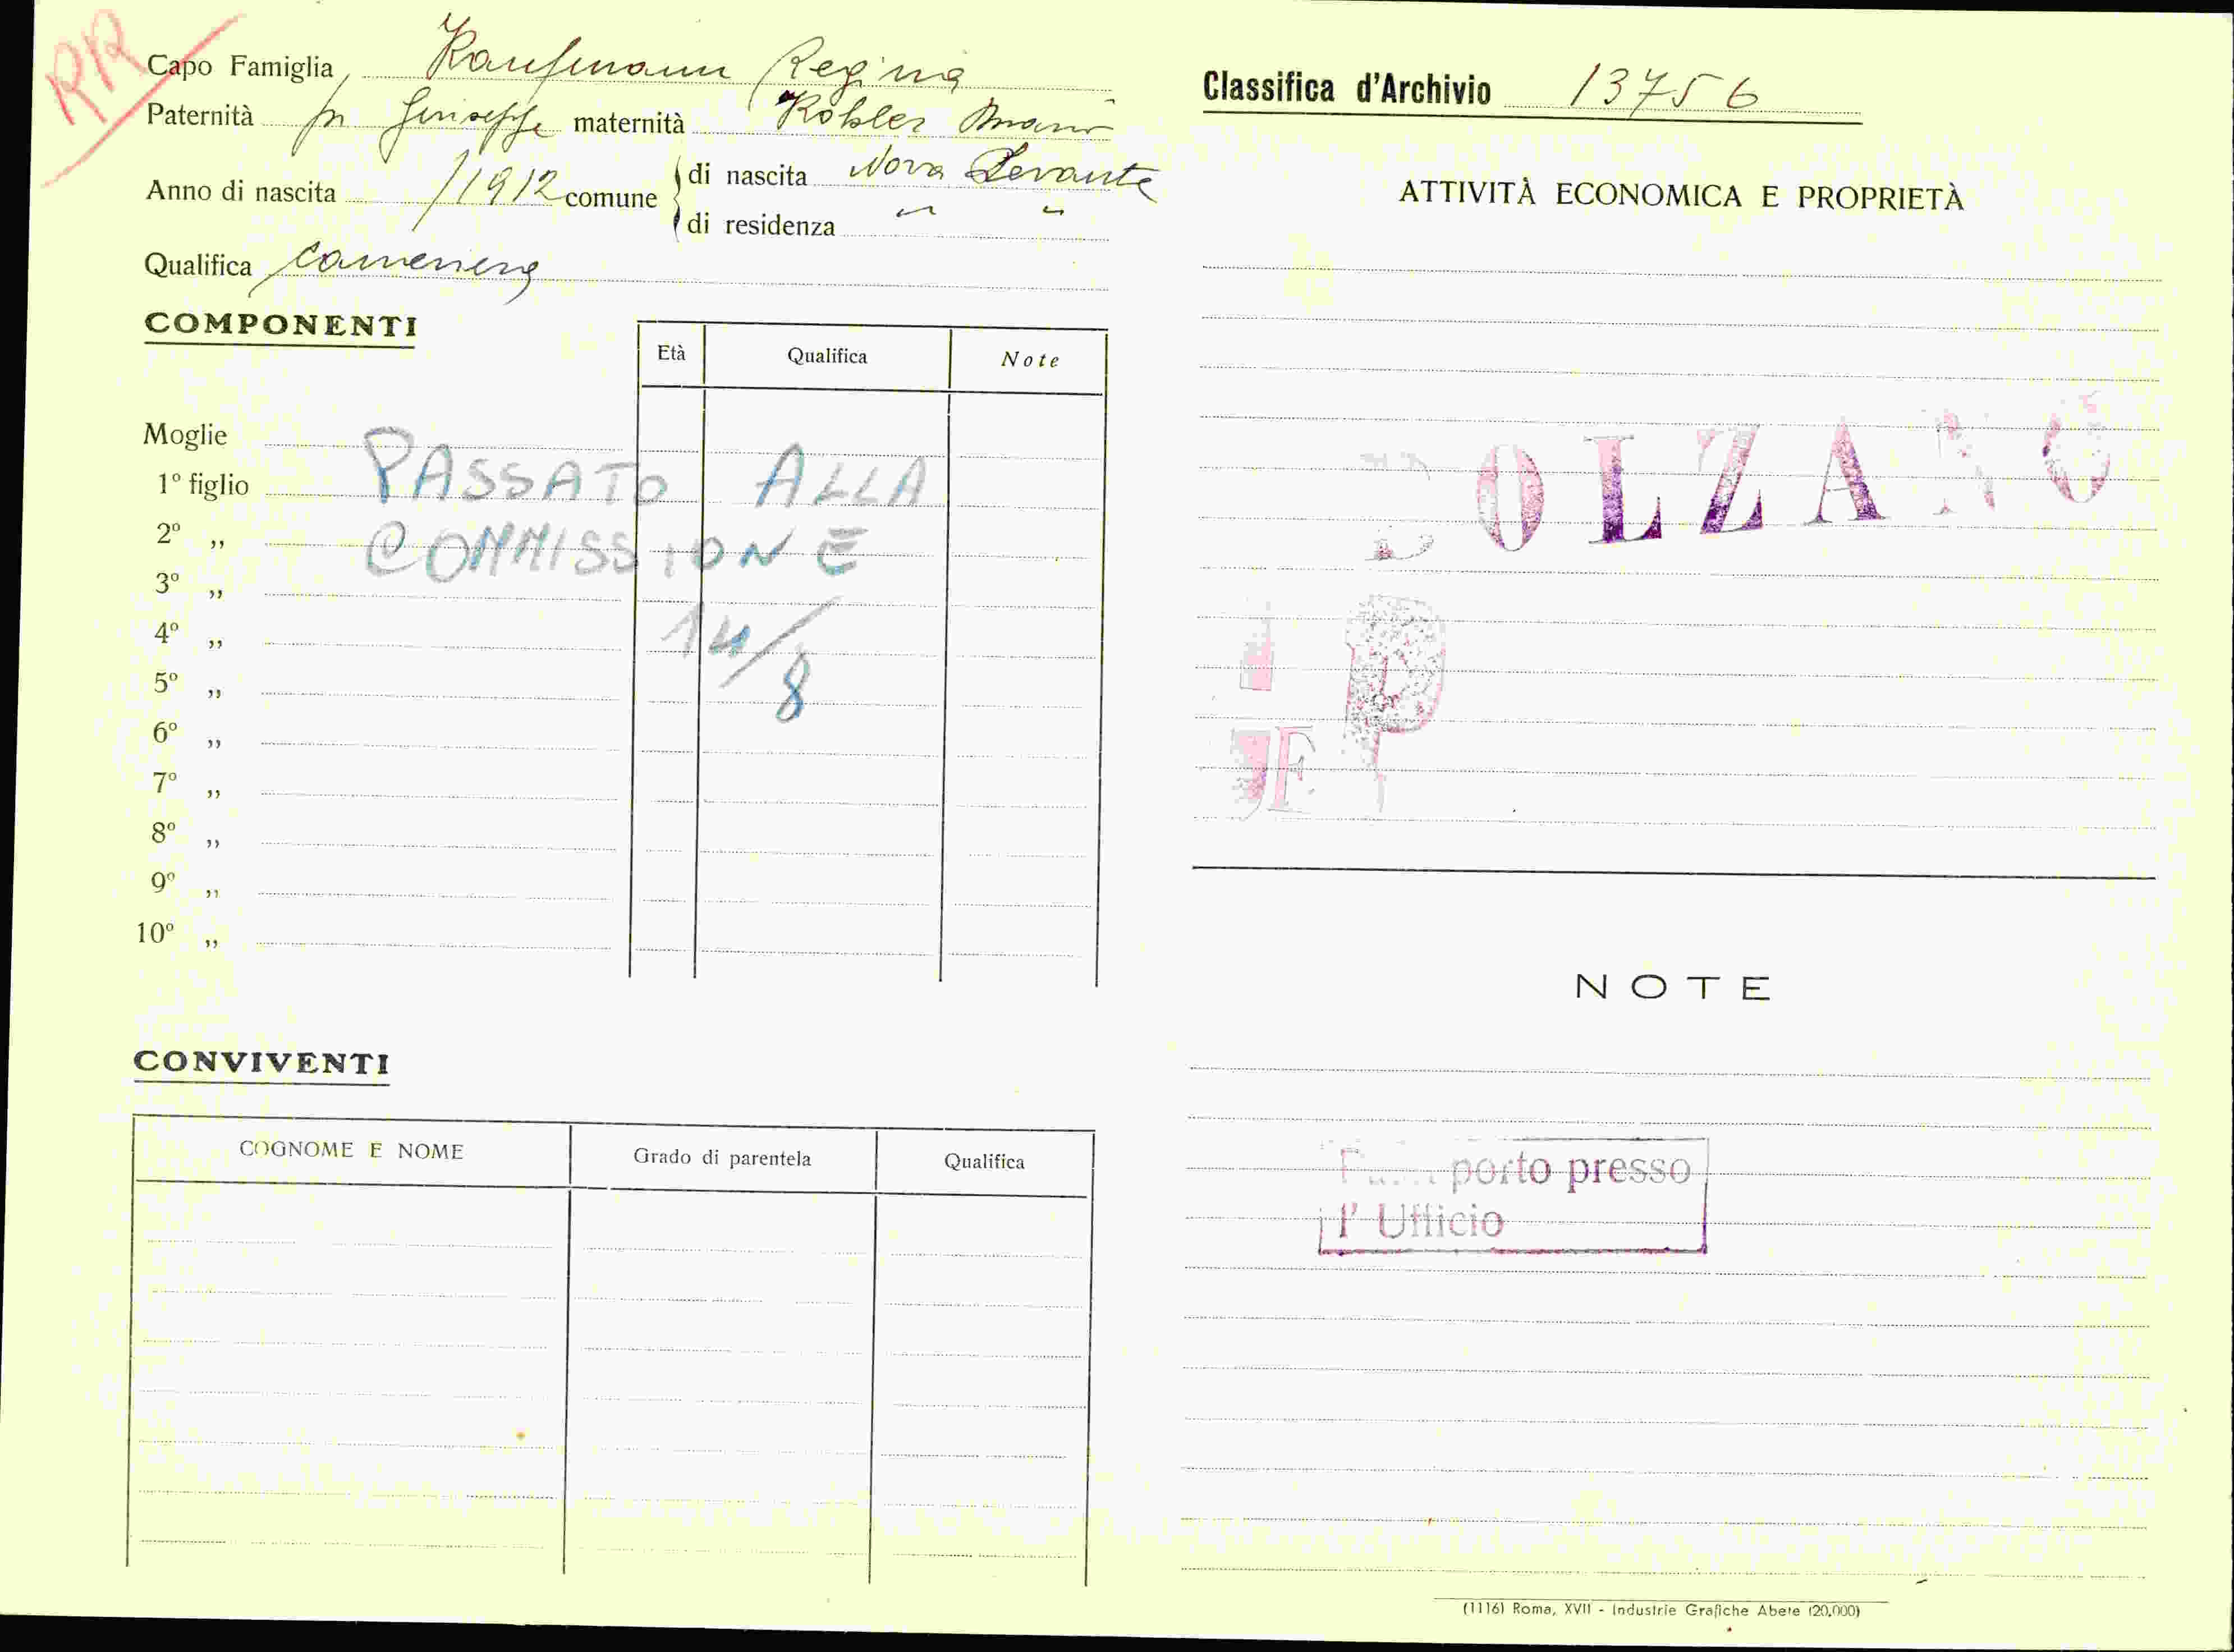 RR
Capo Famiglia Kaufmann Regina
Paternità fu Giuseppe maternità Kohler Maria
Anno di nascita /1912 comune
di nascita Nova Levante
di residenza " "
Qualifica Cameriera
COMPONENTI
Età Qualifica Note
Moglie
1º figlio
2º ,,
3º ,,
4º ,,
5º ,,
6º ,,
7º ,,
8º ,,
9º ,,
10º ,,
PASSATO ALLA
COMMISSIONE
14/8
CONVIVENTI
COGNOME E NOME Grado di parentela Qualifica
Classifica d'Archivio 13756
ATTIVITÀ ECONOMICA E PROPRIETÀ
BOLZANO
P
NOTE
porto presso
l' Ufficio
(1116) Roma, XVII - Industrie Grafiche Abete (20.000)